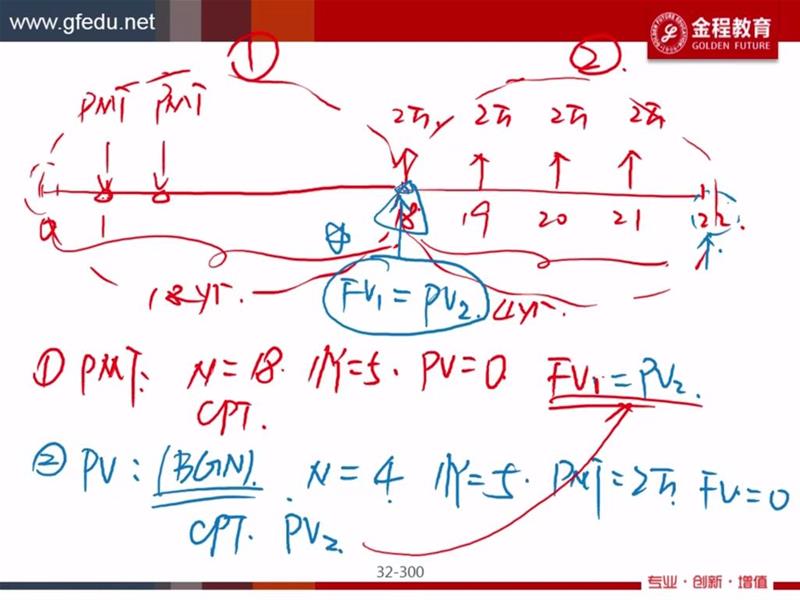 www.gfedu.net
金程教育
GOLDEN FUTURE
① ②
PMT PMT 2万 2万 2万 2万
0 1 18 19 20 21 22
18yr. FV₁ = PV₂ 4yr.
① PMT: N=18. I/Y=5. PV=0. FV₁=PV₂.
CPT.
② PV: (BGN). N=4 I/Y=5. PMT=2万 FV=0
CPT. PV₂
32-300
专业·创新·增值